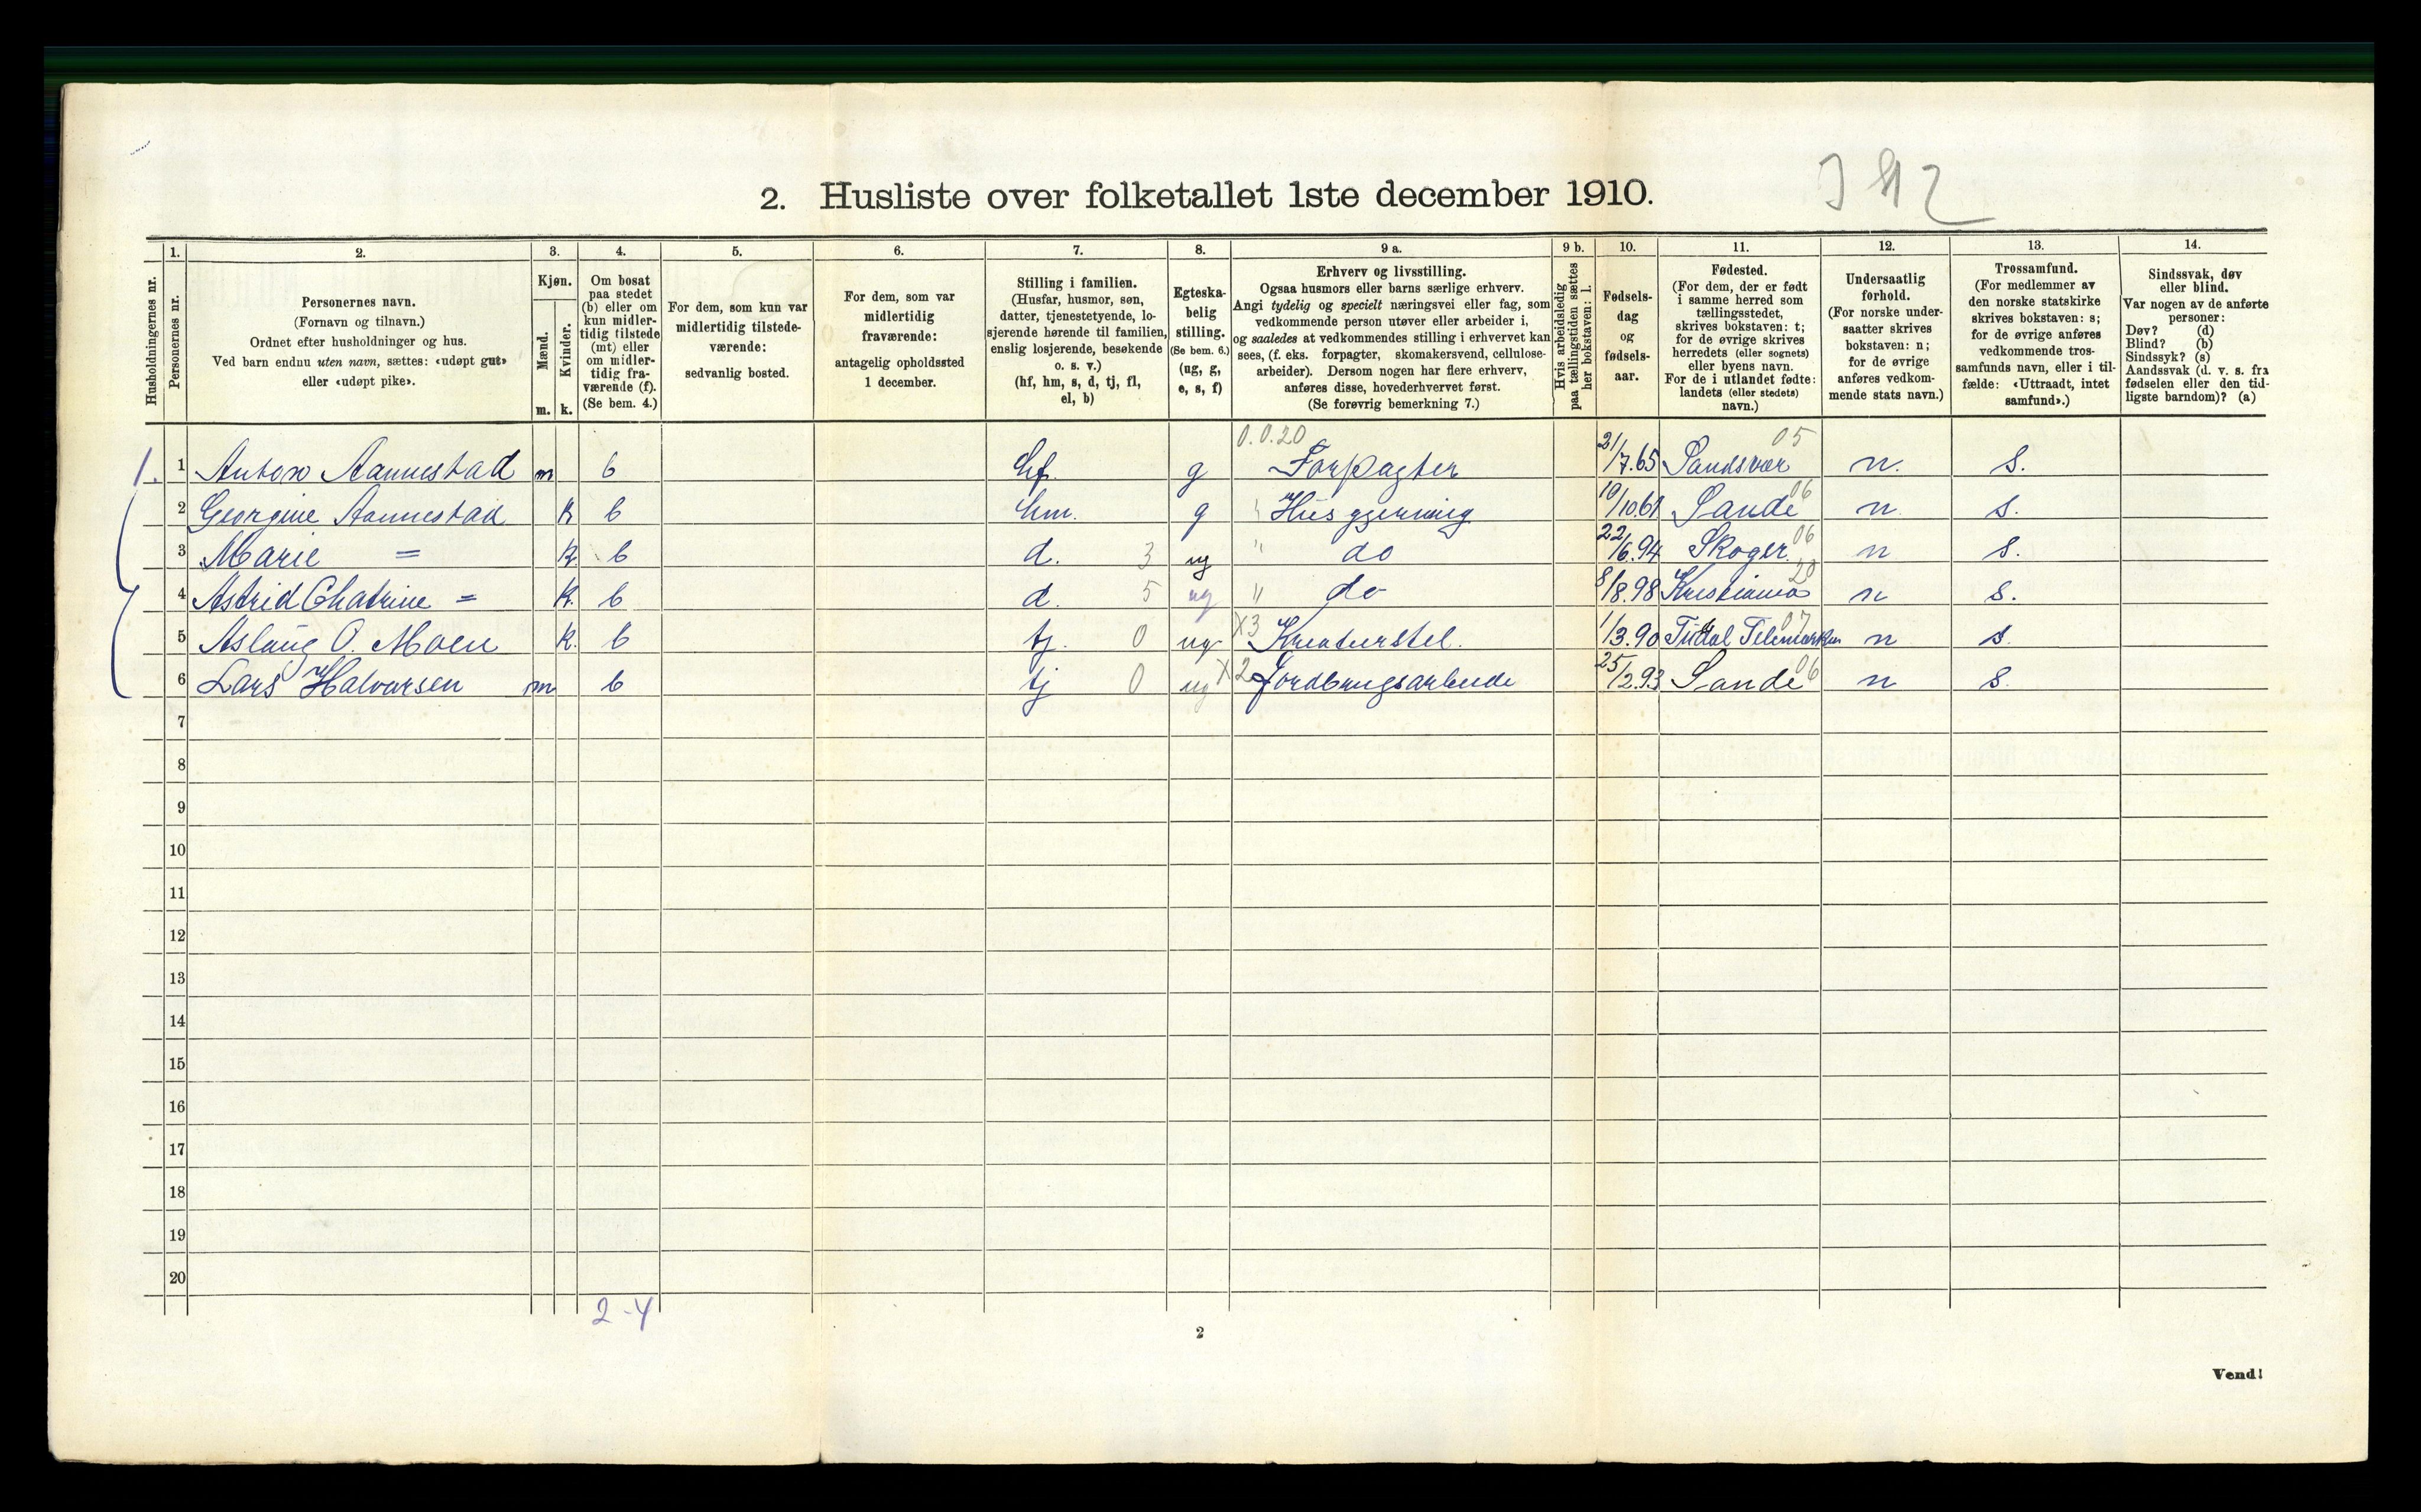 2. Husliste over folketallet 1ste december 1910.
Husholdningernes nr.
1. Personernes nr.
2. Personernes navn.
(Fornavn og tilnavn.)
Ordnet efter husholdninger og hus.
Ved barn endnu uten navn, sættes: «udøpt gut»
eller «udøpt pike».
3. Kjøn.
Mænd. m.
Kvinder. k.
4. Om bosat
paa stedet
(b) eller om
kun midler-
tidig tilstede
(mt) eller
om midler-
tidig fra-
værende (f).
(Se bem. 4.)
5. For dem, som kun var
midlertidig tilstede-
værende:
sedvanlig bosted.
6. For dem, som var
midlertidig
fraværende:
antagelig opholdssted
1 december.
7. Stilling i familien.
(Husfar, husmor, søn,
datter, tjenestetyende, lo-
sjerende hørende til familien,
enslig losjerende, besøkende
o. s. v.)
(hf, hm, s, d, tj, fl,
el, b)
8. Egteska-
belig
stilling.
(Se bem. 6.)
(ug, g,
e, s, f)
9 a. Erhverv og livsstilling.
Ogsaa husmors eller barns særlige erhverv.
Angi tydelig og specielt næringsvei eller fag, som
vedkommende person utøver eller arbeider i,
og saaledes at vedkommendes stilling i erhvervet kan
sees, (f. eks. forpagter, skomakersvend, cellulose-
arbeider). Dersom nogen har flere erhverv,
anføres disse, hovederhvervet først.
(Se forøvrig bemerkning 7.)
9 b. Hvis arbeidsledig
paa tællingstiden sættes
her bokstaven: l.
10. Fødsels-
dag
og
fødsels-
aar.
11. Fødested.
(For dem, der er født
i samme herred som
tællingsstedet,
skrives bokstaven: t;
for de øvrige skrives
herredets (eller sognets)
eller byens navn.
For de i utlandet fødte:
landets (eller stedets)
navn.)
12. Undersaatlig
forhold.
(For norske under-
saatter skrives
bokstaven: n;
for de øvrige
anføres vedkom-
mende stats navn.)
13. Trossamfund.
(For medlemmer av
den norske statskirke
skrives bokstaven: s;
for de øvrige anføres
vedkommende tros-
samfunds navn, eller i til-
fælde: «Uttraadt, intet
samfund».)
14. Sindssvak, døv
eller blind.
Var nogen av de anførte
personer:
Døv? (d)
Blind? (b)
Sindssyk? (s)
Aandssvak (d. v. s. fra
fødselen eller den tid-
ligste barndom)? (a)
0.0.20 05
1. 1 Anton Aannestad m b hf. g Forpagter 21/7.65 Sandsvær n. s.
2 Georgine Aannestad k b hm. g " Husgjerning 10/10.61 Sande 06 n. s.
3 Marie = k b d. 3 ug " do 22/6.94 Skoger 06 n s.
4 Astrid Chatrine = k. b d. 5 ug " do 8/8.98 Kristiania 20 n s.
5 Aslaug O. Moen k. b tj. 0 ug X3 Kreaturstel. 1/3.90 Telemarken 07 n s.
6 Lars Halvorsen m b tj 0 ug X2 Jordbrugsarbeide 25/2.93 Sande 06 n s.
7
8
9
10
11
12
13
14
15
16
17
18
19
20
2-4
2
Vend!